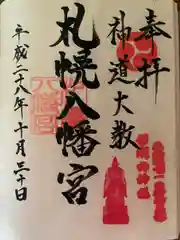 奉拝
神道大教
札幌八幡宮
平成二十八年十月三十日